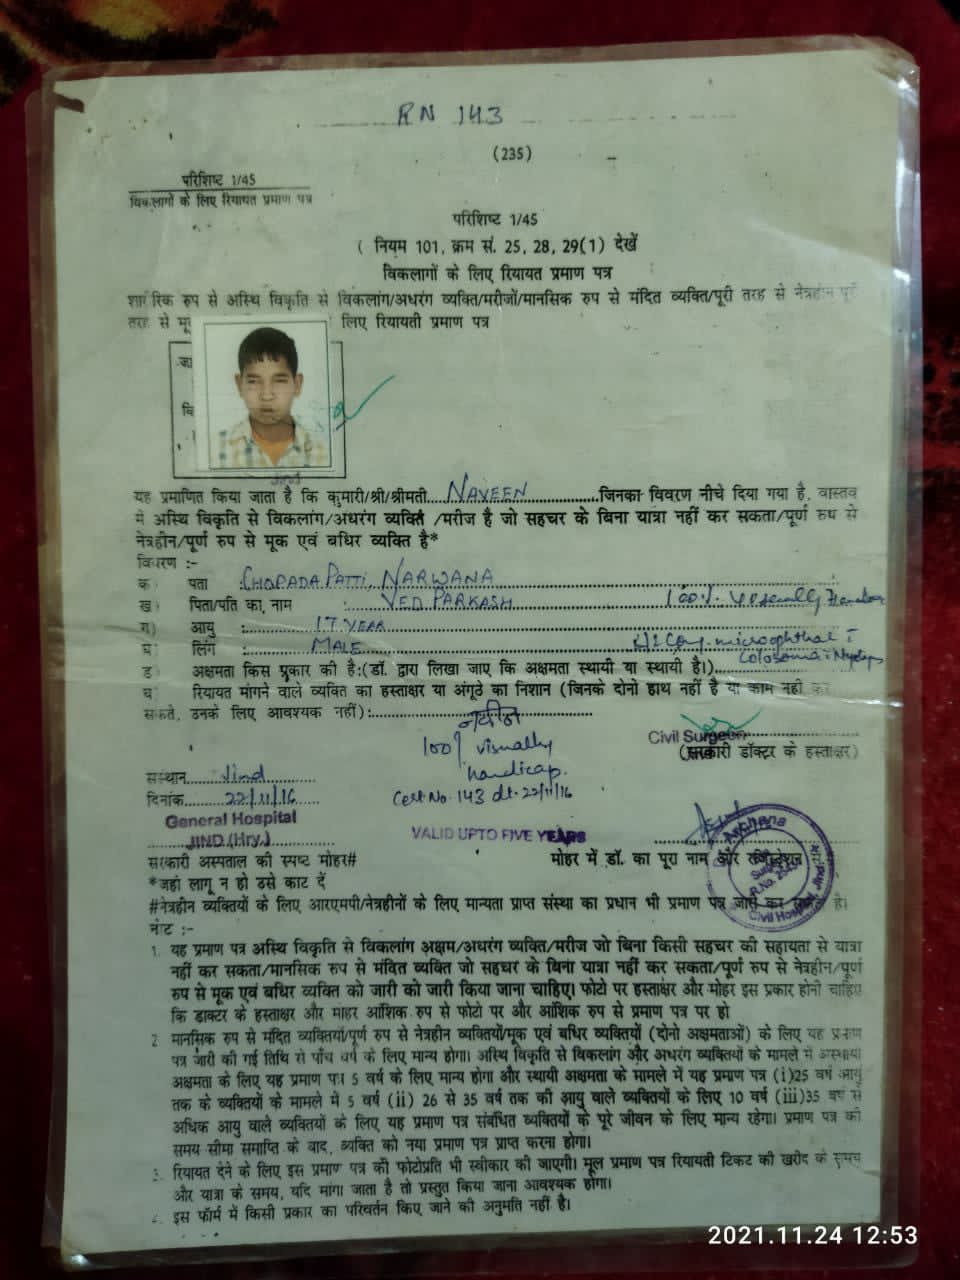 RN 143
(235)
परिशिष्ट 1/45
विकलागों के लिए रियायत प्रमाण पत्र
परिशिष्ट 1/45
( नियम 101, क्रम सं. 25, 28, 29(1) देखें
विकलागों के लिए रियायत प्रमाण पत्र
शारीरिक रुप से अस्थि विकृति से विकलांग/अधरंग व्यक्ति/मरीजों/मानसिक रुप से मंदित व्यक्ति/पूरी तरह से नेत्रहीन पूर्ण
तरह से मू लिए रियायती प्रमाण पत्र
Jind
यह प्रमाणित किया जाता है कि कुमारी/श्री/श्रीमती....NAVEEN.............जिनका विवरण नीचे दिया गया है, वास्तव
में अस्थि विकृति से विकलांग/अधरंग व्यक्ति /मरीज है जो सहचर के बिना यात्रा नहीं कर सकता/पूर्ण रुप से
नेत्रहीन/पूर्ण रुप से मूक एवं बधिर व्यक्ति है*
विवरण :-
क) पता :CHOPADA PATTI, NARWANA
ख) पिता/पति का, नाम : VED PARKASH 100%
ग) आयु : 17 YEAR
घ) लिंग : MALE
ड) अक्षमता किस प्रकार की है:(डॉ. द्वारा लिखा जाए कि अक्षमता स्थायी या स्थायी है।)
च) रियायत मांगने वाले व्यक्ति का हस्ताक्षर या अंगूठे का निशान (जिनके दोनो हाथ नहीं है या काम नही कर
सकते, उनके लिए आवश्यक नहीं):
नवीन
100% visually
handicap.
Cert. No. 143 dt. 22/11/16
Civil Surgeon
(सरकारी डॉक्टर के हस्ताक्षर)
संस्थान Jind
दिनांक 22/11/16
General Hospital
JIND (Hry.)
VALID UPTO FIVE YEARS
Archana
Civil Hospital, Jind
सरकारी अस्पताल की स्पष्ट मोहर# मोहर में डॉ. का पूरा नाम और
*जहां लागू न हो उसे काट दें
#नेत्रहीन व्यक्तियों के लिए आरएमपी/नेत्रहीनों के लिए मान्यता प्राप्त संस्था का प्रधान भी प्रमाण पत्र है।
नोट :-
1. यह प्रमाण पत्र अस्थि विकृति से विकलांग अक्षम/अधरंग व्यक्ति/मरीज जो बिना किसी सहचर की सहायता से यात्रा
नहीं कर सकता/मानसिक रुप से मंदित व्यक्ति जो सहचर के बिना यात्रा नहीं कर सकता/पूर्ण रुप से नेत्रहीन/पूर्ण
रुप से मूक एवं बधिर व्यक्ति को जारी को जारी किया जाना चाहिए। फोटो पर हस्ताक्षर और मोहर इस प्रकार होनी चाहिए
कि डाक्टर के हस्ताक्षर और मोहर आंशिक रुप से फोटो पर और आंशिक रुप से प्रमाण पत्र पर हो
2. मानसिक रुप से मंदित व्यक्तियों/पूर्ण रुप से नेत्रहीन व्यक्तियों/मूक एवं बधिर व्यक्तियों (दोनो अक्षमताओं) के लिए यह प्रमाण
पत्र जारी की गई तिथि से पाँच वर्ष के लिए मान्य होगा। अस्थि विकृति से विकलांग और अधरंग व्यक्तियों के मामले में अस्थायी
अक्षमता के लिए यह प्रमाण पत्र 5 वर्ष के लिए मान्य होगा और स्थायी अक्षमता के मामले में यह प्रमाण पत्र (i)25 वर्ष आयु
तक के व्यक्तियों के मामले में 5 वर्ष (ii) 26 से 35 वर्ष तक की आयु वाले व्यक्तियों के लिए 10 वर्ष (iii)35 वर्ष से
अधिक आयु वाले व्यक्तियों के लिए यह प्रमाण पत्र संबंधित व्यक्तियों के पूरे जीवन के लिए मान्य रहेगा। प्रमाण पत्र की
समय सीमा समाप्ति के बाद, व्यक्ति को नया प्रमाण पत्र प्राप्त करना होगा।
3. रियायत देने के लिए इस प्रमाण पत्र की फोटोप्रति भी स्वीकार की जाएगी। मूल प्रमाण पत्र रियायती टिकट की खरीद के समय
और यात्रा के समय, यदि मांगा जाता है तो प्रस्तुत किया जाना आवश्यक होगा।
4. इस फॉर्म में किसी प्रकार का परिवर्तन किए जाने की अनुमति नहीं है।
2021.11.24 12:53